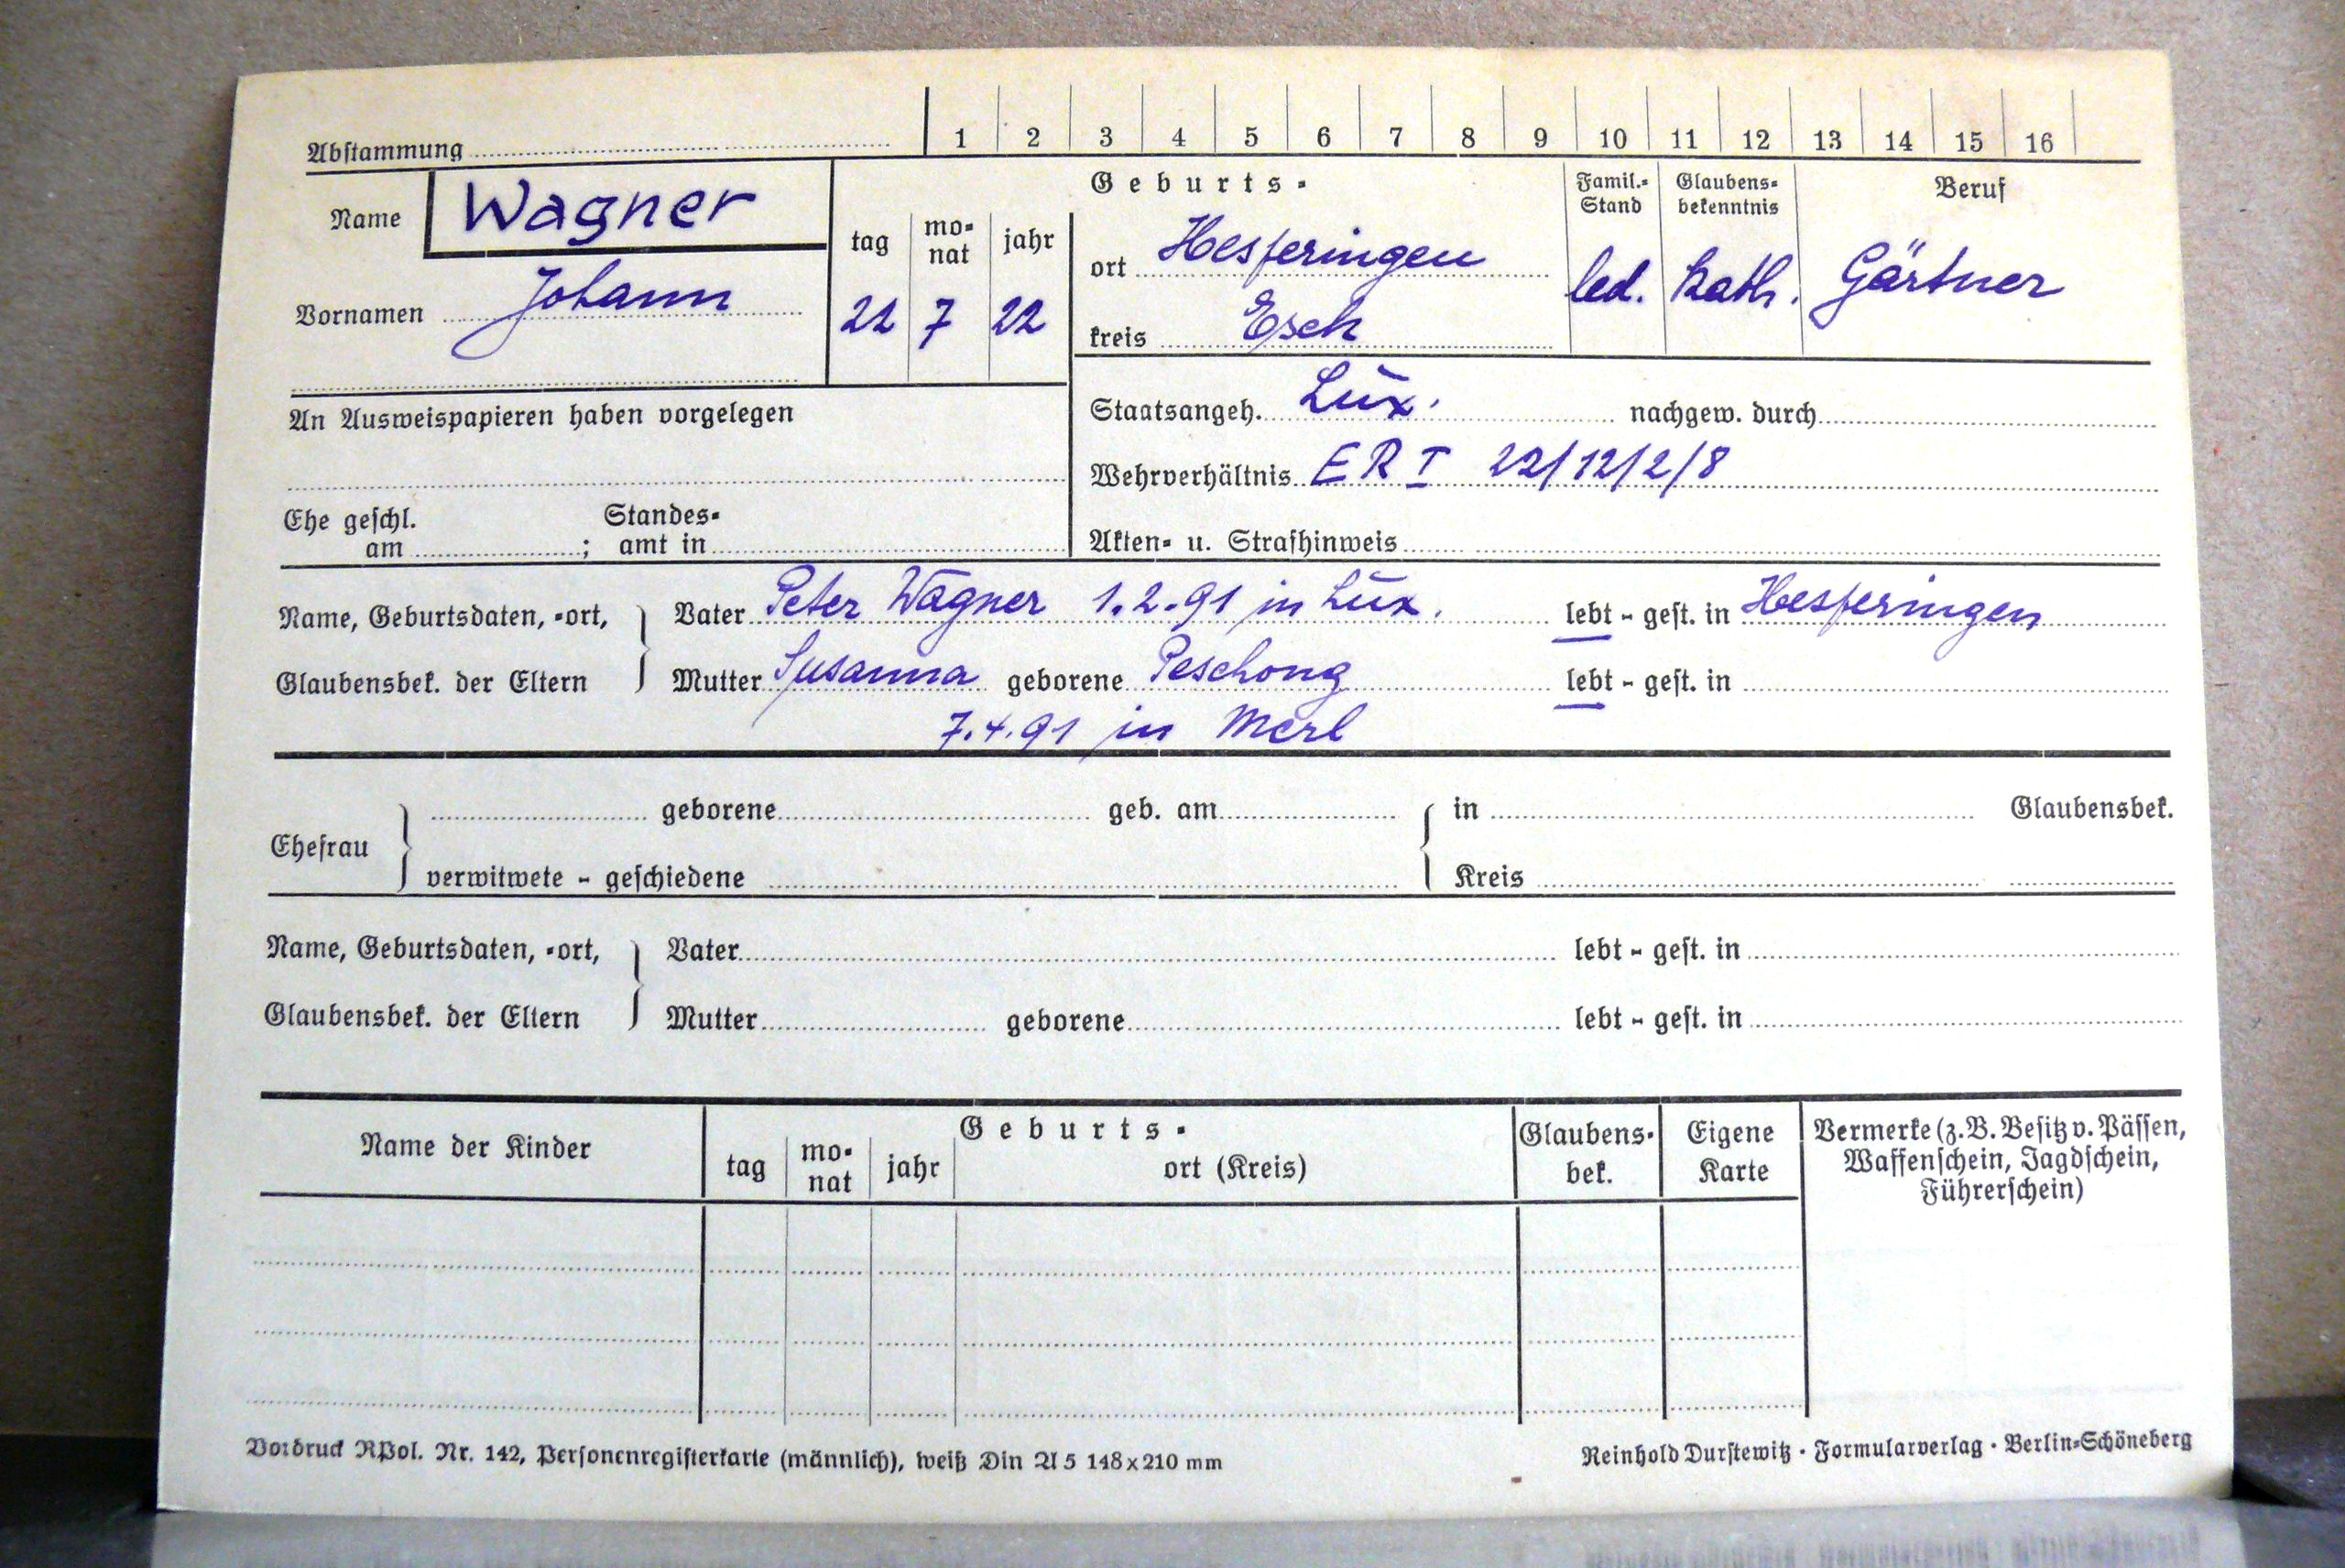 Abstammung 1 2 3 4 5 6 7 8 9 10 11 12 13 14 15 16
Name Wagner
Vornamen Johann
Geburts-
tag mo-nat jahr
22 7 22
ort Hesperingen
kreis Esch
Famil.-Stand
led.
Glaubens-bekenntnis
Kath.
Beruf
Gärtner
An Ausweispapieren haben vorgelegen
Staatsangeh. Lux. nachgew. durch
Wehrverhältnis ER I 22/12/2/8
Ehe geschl. am ; Standes-amt in
Akten- u. Strafhinweis
Name, Geburtsdaten, -ort,
Glaubensbek. der Eltern
Vater Peter Wagner 1.2.91 in Lux. lebt - gest. in Hesperingen
Mutter Susanna geborene Peschong lebt - gest. in
7.4.91 in Merl
Ehefrau
geborene geb. am in Glaubensbek.
verwitwete - geschiedene Kreis
Name, Geburtsdaten, -ort,
Glaubensbek. der Eltern
Vater lebt - gest. in
Mutter geborene lebt - gest. in
Name der Kinder
Geburts-
tag mo-nat jahr ort (Kreis)
Glaubens-bek.
Eigene Karte
Vermerke (z.B. Besitz v. Pässen,
Waffenschein, Jagdschein,
Führerschein)
Vordruck RPol. Nr. 142, Personenregisterkarte (männlich), weiß Din A 5 148x210 mm
Reinhold Durstewitz · Formularverlag · Berlin-Schöneberg